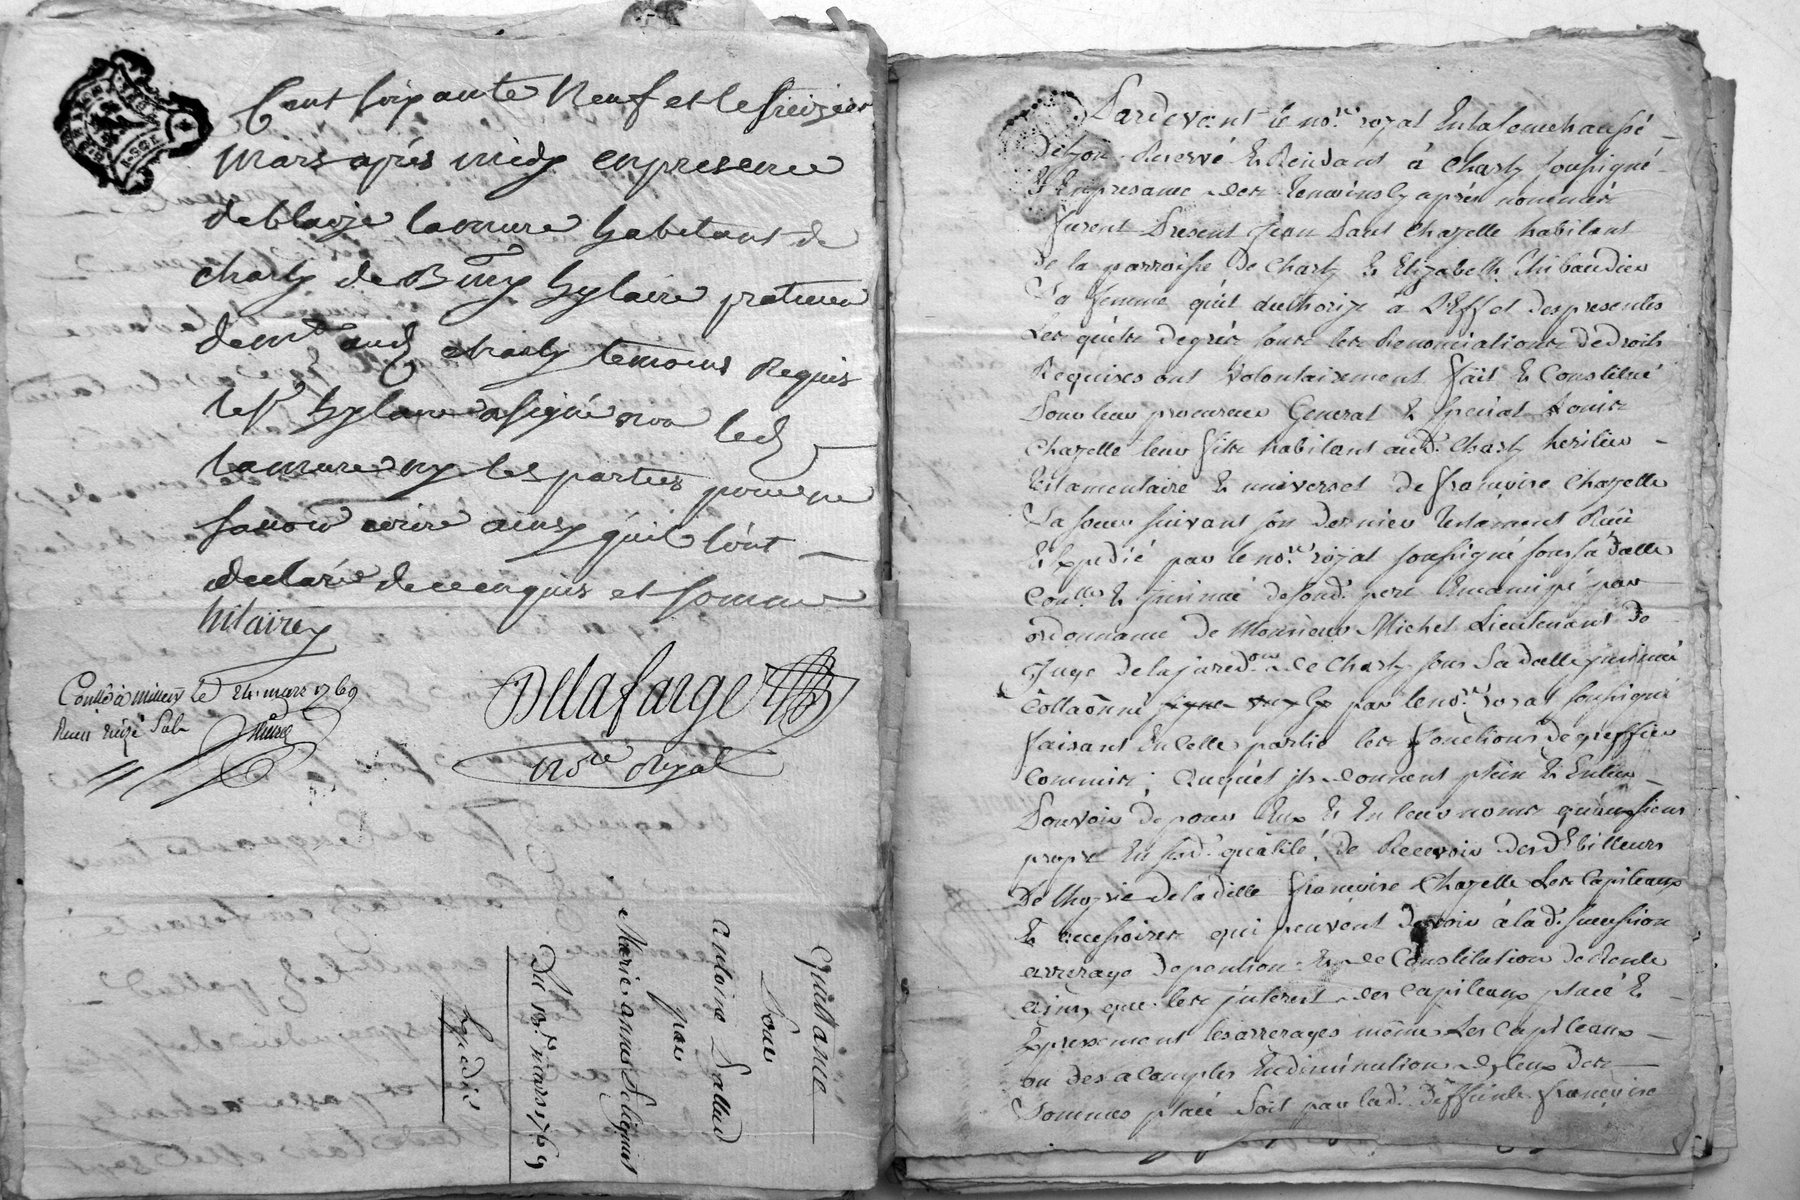 Cent soixante Neuf et le treizieme
mars après midy en presence
de blaize lamure habitant de
charly de B hylaire praticien
de aud charly temoins Requis
le sr hylaire a signé non led
lamure ny les parties pour ne
savoir ecrire ainsy qu'il lont
declaré de ce enquis et somme
hilairey
Conllé à millery le 24 mars 1769
Reçu
Delafarge
nore Royal
Quittance
Pour
antoine Pallud
par
Marie anne
Du 13e mars 1769
Expedié
Pardevant le nore royal en la senechaussé
de Lyon Reservé et Residant à Charly soussigné
et en presance des temoins cy après nommés
furent Present Jean Chazelle habitant
de la parroisse de Charly et Elizabeth Thibaudier
Sa femme qu'il authorize à L'Effet des presentes
Lesquels degrés sous les Renonciations de droits
Requises ont volontairement fait et Constitué
Pour leur procureur General et special Louis
Chazelle leur fils habitant aud. Charly heritier
testamentaire et universel de françoise Chazelle
Sa soeur suivant son dernier testament Reçu
et Expedié par le nore royal soussigné sous sa datte
Conllé et insinué de sond. pere Emancipé par
ordonnance de Monsieur Michel Lieutenant de
Juge de la juredon de Charly sous sa datte insinué
Collaonné par le nore royal soussigné
faisant en Cette partie les fonctions de greffier
Commis; auquel ils donnent plein et Entier
Pouvoir de pour Eux et En leurs noms qu'au sien
propre En sad. qualité, de Recevoir des debitteurs
de l'hoyrie de la ditte françoise Chazelle Les Capiteaux
et accessoires qui peuvent devoir à la d. succession
arrerage de pention et de Constitution de Rente
ainsy que les jnterest des Capiteaux placé et
Expressement les arrerages même Les Capiteaux
ou des acomptes En diminution d'yceux des
Sommes placé Soit par la d. deffunte françoise